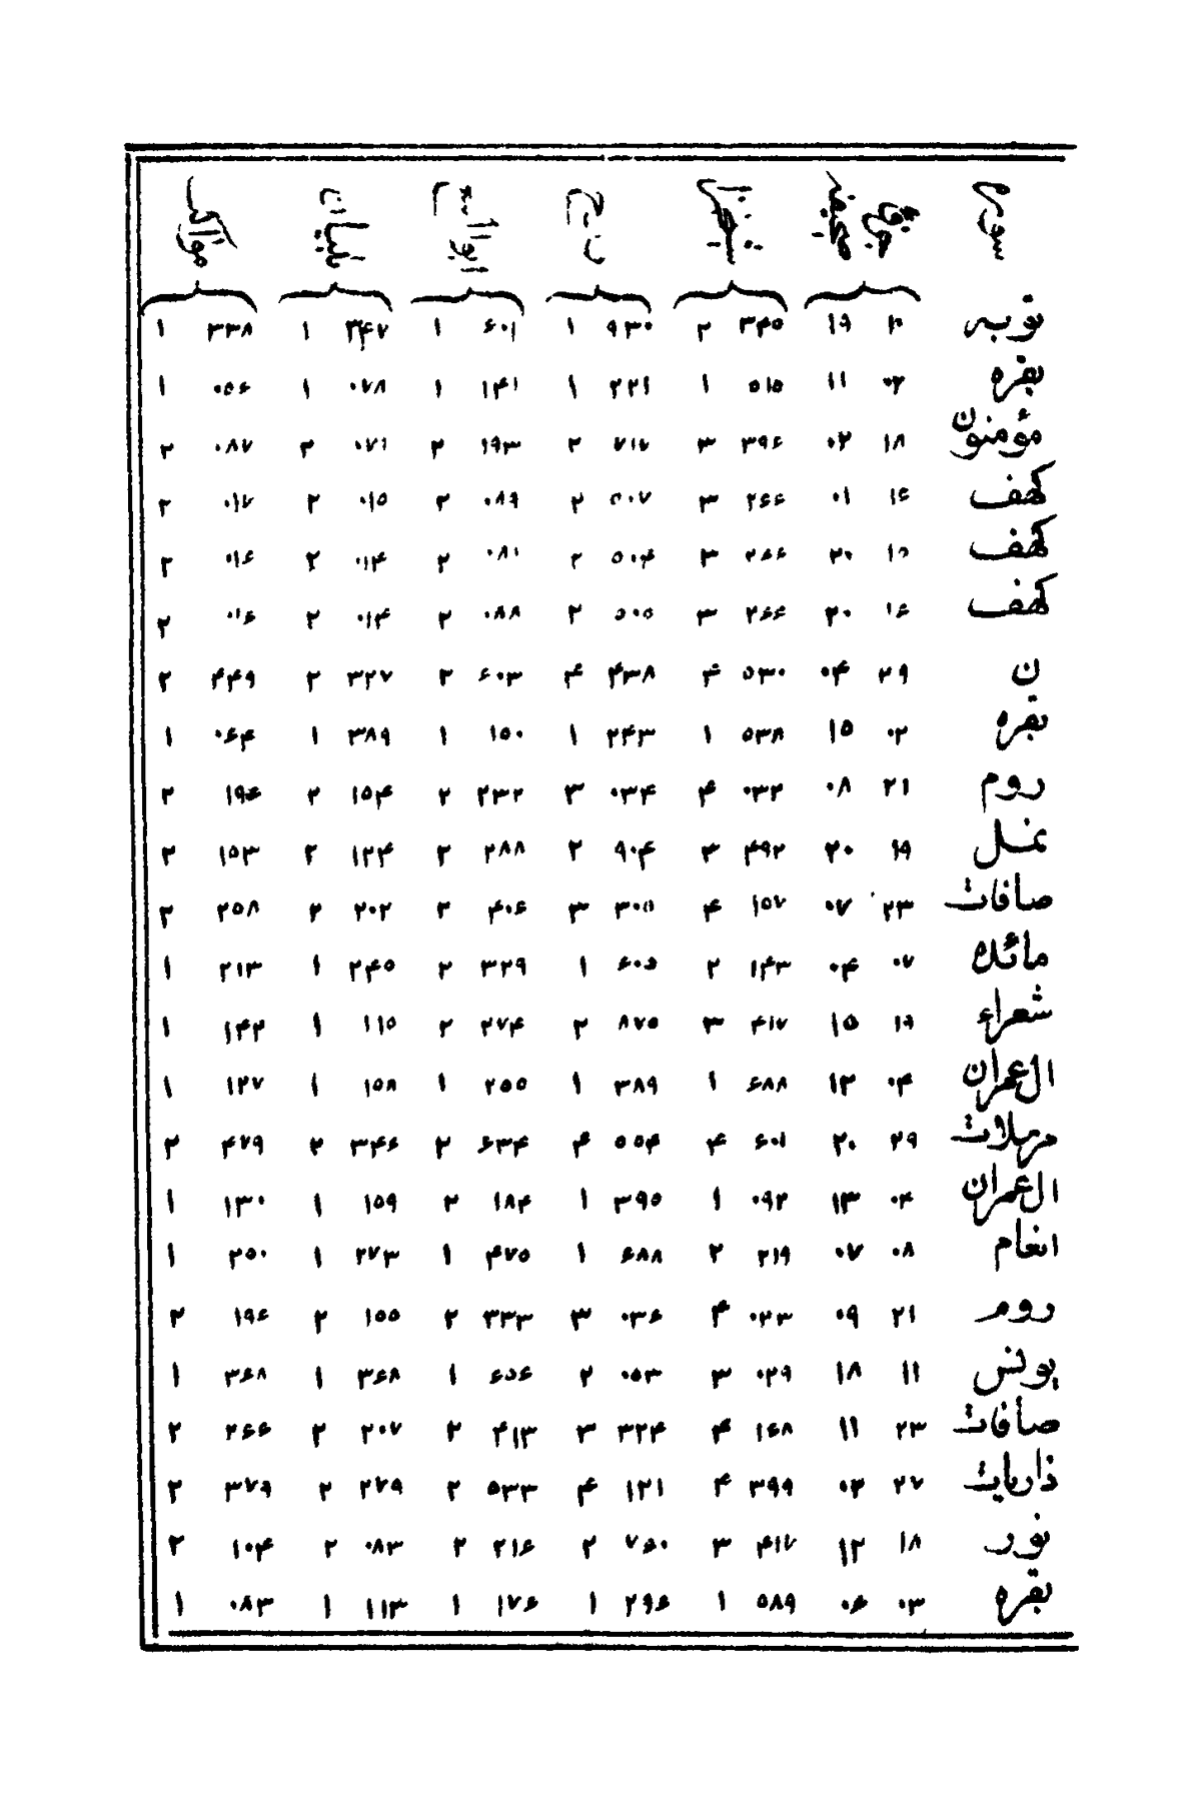 سوره جزؤ صحيفه روح ابو السعود تبيان مواكب
توبه ۱۹ ۳۴۵ ۲ ۹۳۰ ۱ ۶۰۱ ۱ ۳۴۷ ۱ ۳۳۸ ۱
بقره ۰۲ ۱۱ ۵۱۵ ۱ ۲۲۱ ۱ ۱۴۱ ۱ ۰۷۸ ۱ ۰۵۶ ۱
مؤمنون ۱۸ ۰۲ ۳۹۶ ۳ ۷۱۷ ۲ ۱۹۳ ۲ ۰۷۱ ۲ ۰۸۷ ۲
كهف ۱۶ ۰۱ ۲۶۶ ۳ ۵۰۷ ۲ ۰۸۹ ۲ ۰۱۵ ۲ ۰۱۷ ۲
كهف ۱۵ ۲۰ ۲۶۶ ۳ ۵۰۴ ۲ ۲ ۰۱۴ ۲ ۰۱۶ ۲
كهف ۱۶ ۲۰ ۲۶۶ ۳ ۵۰۵ ۲ ۰۸۸ ۲ ۰۱۴ ۲ ۰۱۶ ۲
ن ۲۹ ۰۴ ۵۳۰ ۴ ۴۳۸ ۴ ۶۰۳ ۲ ۳۲۷ ۲ ۴۴۹ ۲
بقره ۰۲ ۱۵ ۵۳۸ ۱ ۲۴۳ ۱ ۱۵۰ ۱ ۳۸۹ ۱ ۰۶۴ ۱
روم ۲۱ ۰۸ ۰۳۲ ۴ ۰۳۴ ۳ ۲۳۲ ۲ ۱۵۴ ۲ ۱۹۶ ۲
نمل ۱۹ ۲۰ ۴۹۲ ۳ ۹۰۴ ۲ ۲۸۸ ۲ ۱۲۴ ۲ ۱۵۳ ۲
صافات ۲۳ ۰۷ ۱۵۷ ۴ ۳۰۵ ۳ ۴۰۶ ۲ ۲۰۲ ۲ ۲۵۸ ۲
مائده ۰۷ ۰۴ ۱۴۳ ۲ ۶۰۵ ۱ ۳۲۹ ۲ ۲۴۵ ۱ ۲۱۳ ۱
شعراء ۱۹ ۱۵ ۴۱۷ ۳ ۸۷۵ ۲ ۲۷۴ ۲ ۱۱۵ ۱ ۱۴۲ ۱
ال عمران ۰۴ ۱۲ ۶۸۸ ۱ ۳۸۹ ۱ ۲۵۵ ۱ ۱۵۸ ۱ ۱۲۷ ۱
مرسلات ۲۹ ۲۰ ۶۰۱ ۴ ۵۵۴ ۴ ۶۳۴ ۲ ۳۴۶ ۲ ۴۷۹ ۲
ال عمران ۰۴ ۱۳ ۰۹۲ ۱ ۳۹۵ ۱ ۱۸۴ ۲ ۱۵۹ ۱ ۱۳۰ ۱
انعام ۰۸ ۰۷ ۲۱۹ ۲ ۶۸۸ ۱ ۴۷۵ ۱ ۲۷۳ ۱ ۲۵۰ ۱
روم ۲۱ ۰۹ ۰۲۳ ۴ ۰۳۶ ۳ ۳۳۳ ۲ ۱۵۵ ۲ ۱۹۶ ۲
يونس ۱۱ ۱۸ ۰۲۹ ۳ ۰۵۳ ۲ ۶۵۶ ۱ ۳۶۸ ۱ ۳۶۸ ۱
صافات ۲۳ ۱۱ ۱۶۸ ۴ ۳۲۴ ۳ ۴۱۳ ۲ ۲۰۷ ۲ ۲۶۶ ۲
ذاريات ۲۷ ۰۲ ۳۹۹ ۴ ۱۲۱ ۴ ۵۳۳ ۲ ۲۷۹ ۲ ۳۷۹ ۲
نور ۱۸ ۱۲ ۴۱۷ ۳ ۷۶۰ ۲ ۲۱۶ ۲ ۰۸۳ ۲ ۱۰۴ ۲
بقره ۰۳ ۰۶ ۵۸۹ ۱ ۲۹۶ ۱ ۱۷۶ ۱ ۱۱۳ ۱ ۰۸۳ ۱